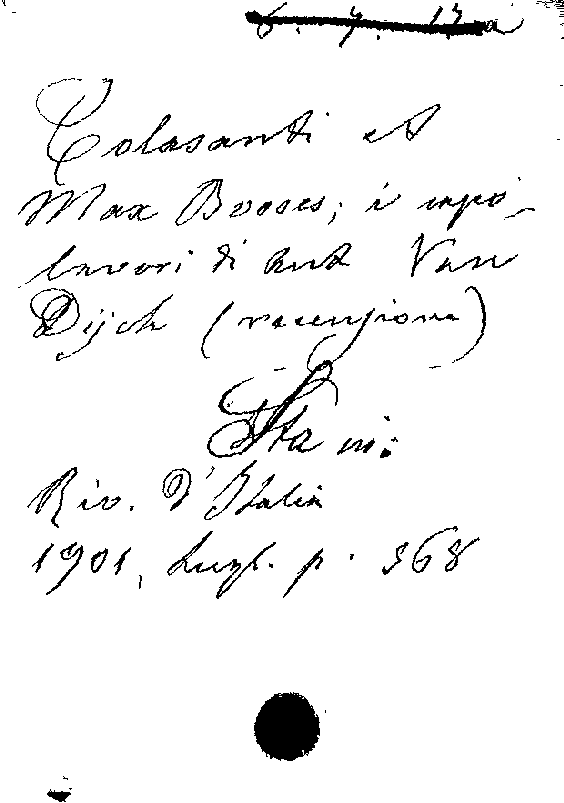 6. 7. 17. a
Colasanti A
Max Rooses; i capo-
lavori di Ant Van
Dijck (recensione)
Sta in:
Riv. d'Italia
1901, Lugl. p. 568